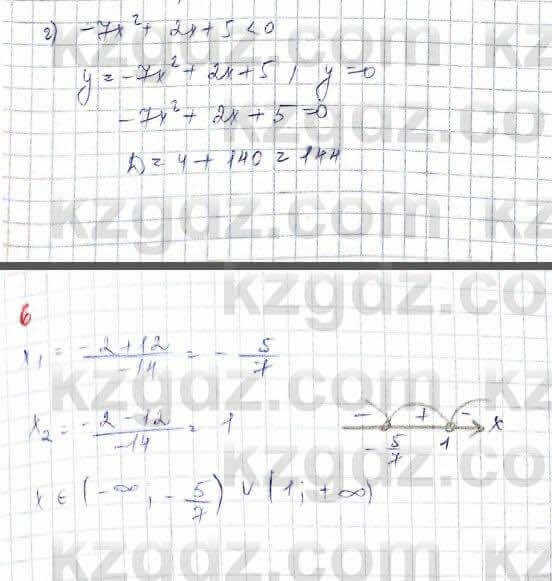 г) -7x² + 2x + 5 < 0
y = -7x² + 2x + 5 , y = 0
-7x² + 2x + 5 = 0
D = 4 + 140 = 144
kzgdz.com
6
x₁ = (-2+12)/(-14) = -5/7
x₂ = (-2-12)/(-14) = 1
- + - x
-5/7 1
x ∈ (-∞; -5/7) ∨ (1; +∞)